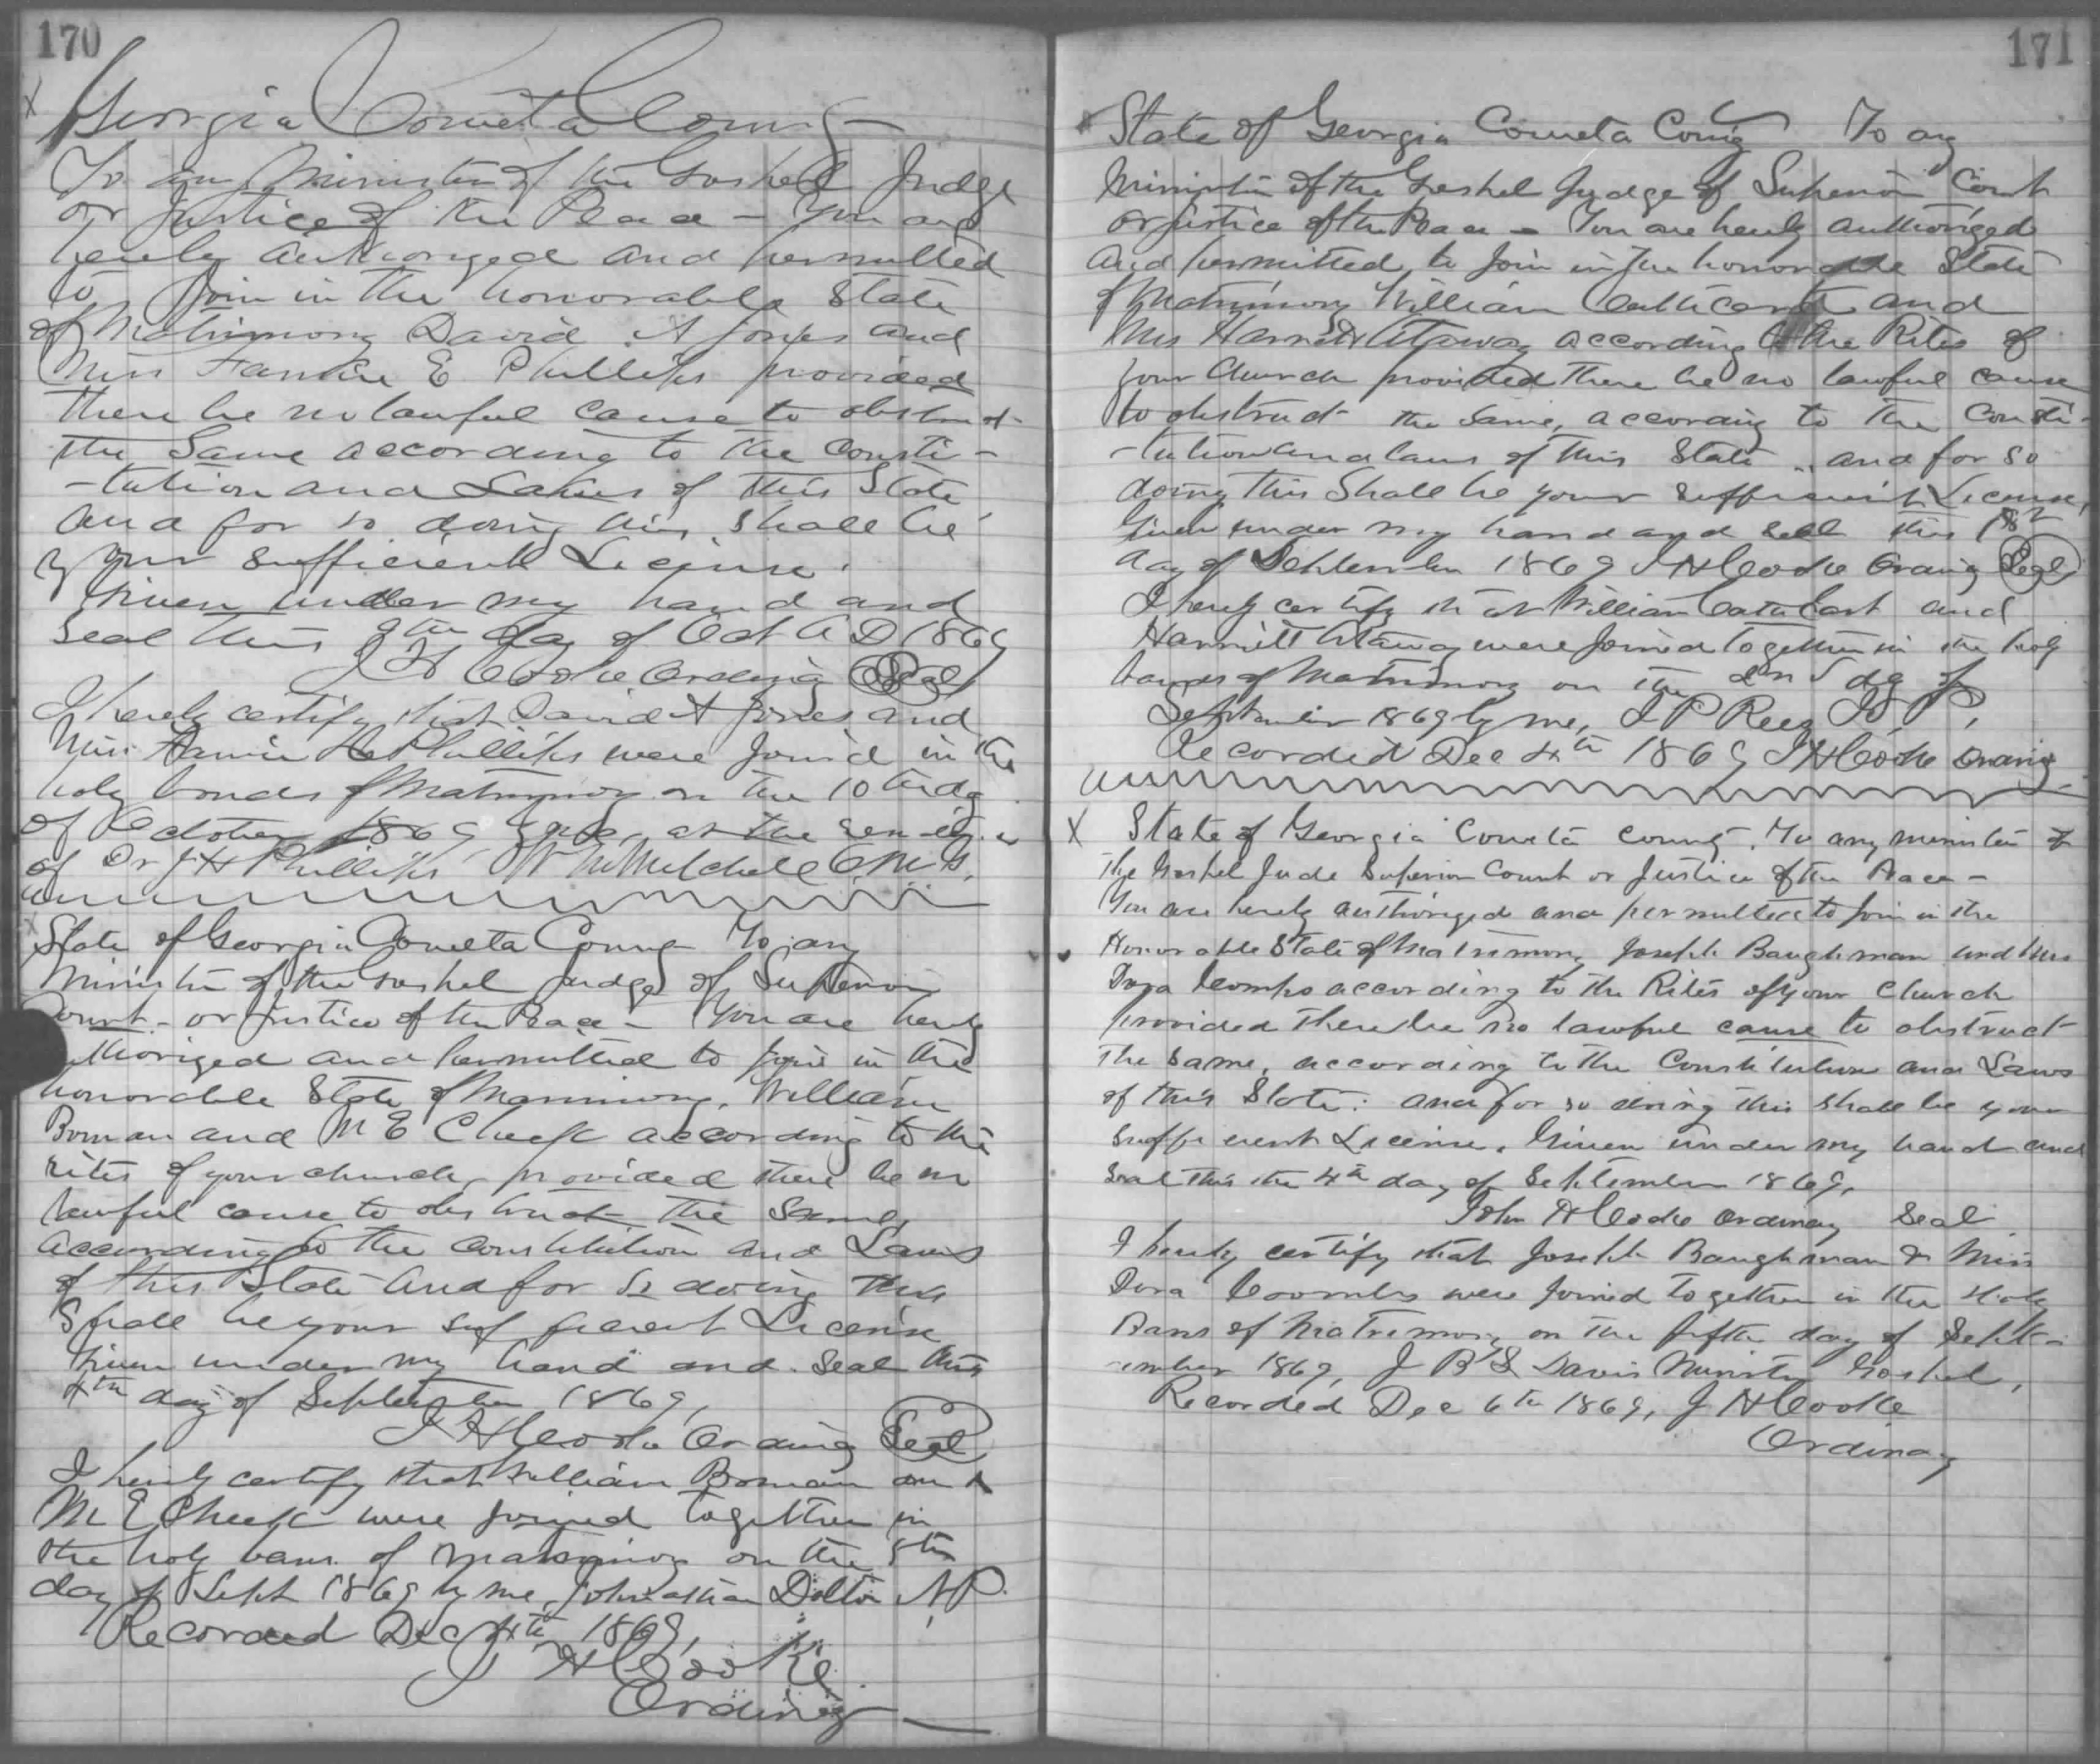 170
Georgia Coweta County
To any Minister of the Gospel Judge
or Justice of the Peace - You are
hereby authorized and permitted
to Join in the honorable State
of Matrimony David A Jones and
Miss Fannie E Phillips provided
there be no lawful cause to obstruct
the Same according to the Consti-
-tution and Laws of this State
and for so doing this shall be
your sufficient License.
Given under my hand and
Seal this 9th day of Oct A D 1869
J H Cooke Ordinary Seal
I hereby certify that David A Jones and
Miss Fannie E Phillips were Joined in the
holy bonds of Matrimony on the 10th day
of October 1869 at the residence
of Dr J H Phillips W M Mitchell
State of Georgia Coweta County To any
Minister of the Gospel Judge of Superior
Court - or Justice of the Peace - You are hereby
authorized and permitted to Join in the
honorable State of Matrimony, William
Boman and M E Cheek according to the
rites of your church, provided there be no
lawful cause to obstruct the Same,
according to the Constitution and Laws
of this State and for so doing this
Shall be your sufficient License
Given under my hand and Seal this
4th day of September 1869,
J H Cooke Ordinary Seal
I hereby certify that William Boman and
M E Cheek were joined together in
the holy bans of Matrimony on the 5th
day of Sept 1869 by me, Johnathan Dolton N.P.
Recorded Dec 4th 1869,
J H Cooke
Ordinary
171
State of Georgia Coweta County To any
Minister of the Gospel Judge of Superior Court
or Justice of the Peace - You are hereby authorized
and permitted to Join in the honorable State
of Matrimony William and
Mrs Harriett Attaway according to the Rites of
your Church provided there be no lawful cause
to obstruct the Same, according to the Consti-
-tution and laws of this State, and for so
doing this Shall be your sufficient License,
Given under my hand and seal this 1st
day of September 1869 J H Cooke Ordinary Seal
I hereby certify that William Cathcart and
Harriett Attaway were Joined together in the holy
banns of Matrimony on the 2nd day of
September 1869 by me, J P Reese J. P.
Recorded Dec 4th 1869 J H Cooke Ordinary
X State of Georgia Coweta County. To any minister of
The Gospel Jude Superior Court or Justice of the Peace -
You are hereby authorized and permitted to Join in the
Honorable State of Matrimony Joseph Baughman and Miss
Dora Combs according to the Rites of your Church
provided there be no lawful cause to obstruct
the Same, according to the Constitution and Laws
of this State: and for so doing this shall be your
sufficient License. Given under my hand and
Seal this the 4th day of September 1869.
John H Cooke Ordinary Seal
I hereby certify that Joseph Baughman & Miss
Dora Coombs were Joined together in the Holy
Bans of Matrimony on the fifth day of Sept-
ember 1869, J B S Davis Minister Gospel,
Recorded Dec 6th 1869, J H Cooke
Ordinary